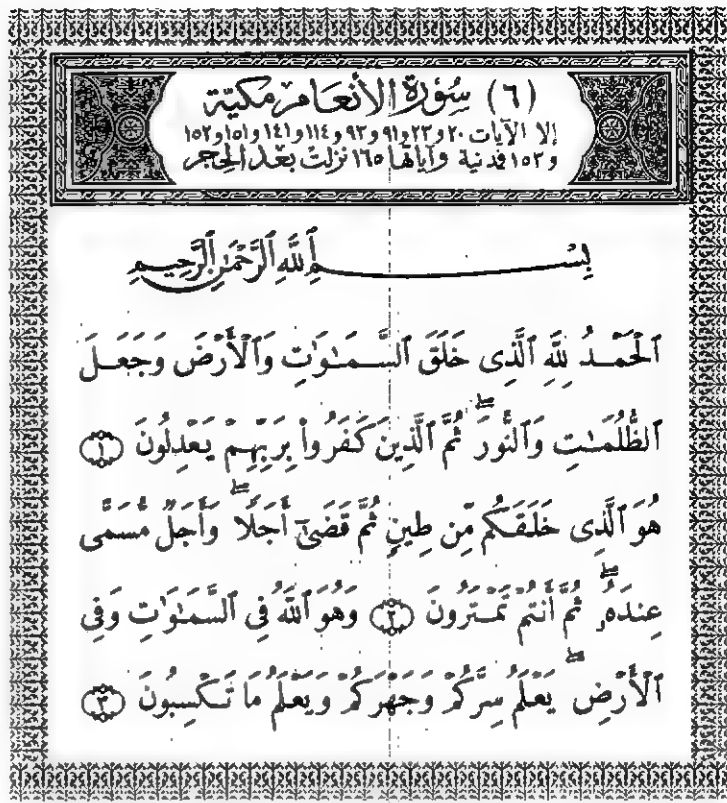 (٦) سُورَةُ الأنعَامِ مَكيّة
إلا الآيات ٢٠ و٢٣ و٩١ و٩٣ و١١٤ و١٤١ و١٥١ و١٥٢
و١٥٣ فمدنية وآياتها ١٦٥ نزلت بعد الحِجر
بِسْمِ ٱللَّهِ ٱلرَّحْمَٰنِ ٱلرَّحِيمِ
ٱلْحَمْدُ لِلَّهِ ٱلَّذِى خَلَقَ ٱلسَّمَٰوَٰتِ وَٱلْأَرْضَ وَجَعَلَ
ٱلظُّلُمَٰتِ وَٱلنُّورَ ۖ ثُمَّ ٱلَّذِينَ كَفَرُوا۟ بِرَبِّهِمْ يَعْدِلُونَ ١
هُوَ ٱلَّذِى خَلَقَكُم مِّن طِينٍ ثُمَّ قَضَىٰٓ أَجَلًا ۖ وَأَجَلٌ مُّسَمًّى
عِندَهُۥ ۖ ثُمَّ أَنتُمْ تَمْتَرُونَ ٢ وَهُوَ ٱللَّهُ فِى ٱلسَّمَٰوَٰتِ وَفِى
ٱلْأَرْضِ ۖ يَعْلَمُ سِرَّكُمْ وَجَهْرَكُمْ وَيَعْلَمُ مَا تَكْسِبُونَ ٣